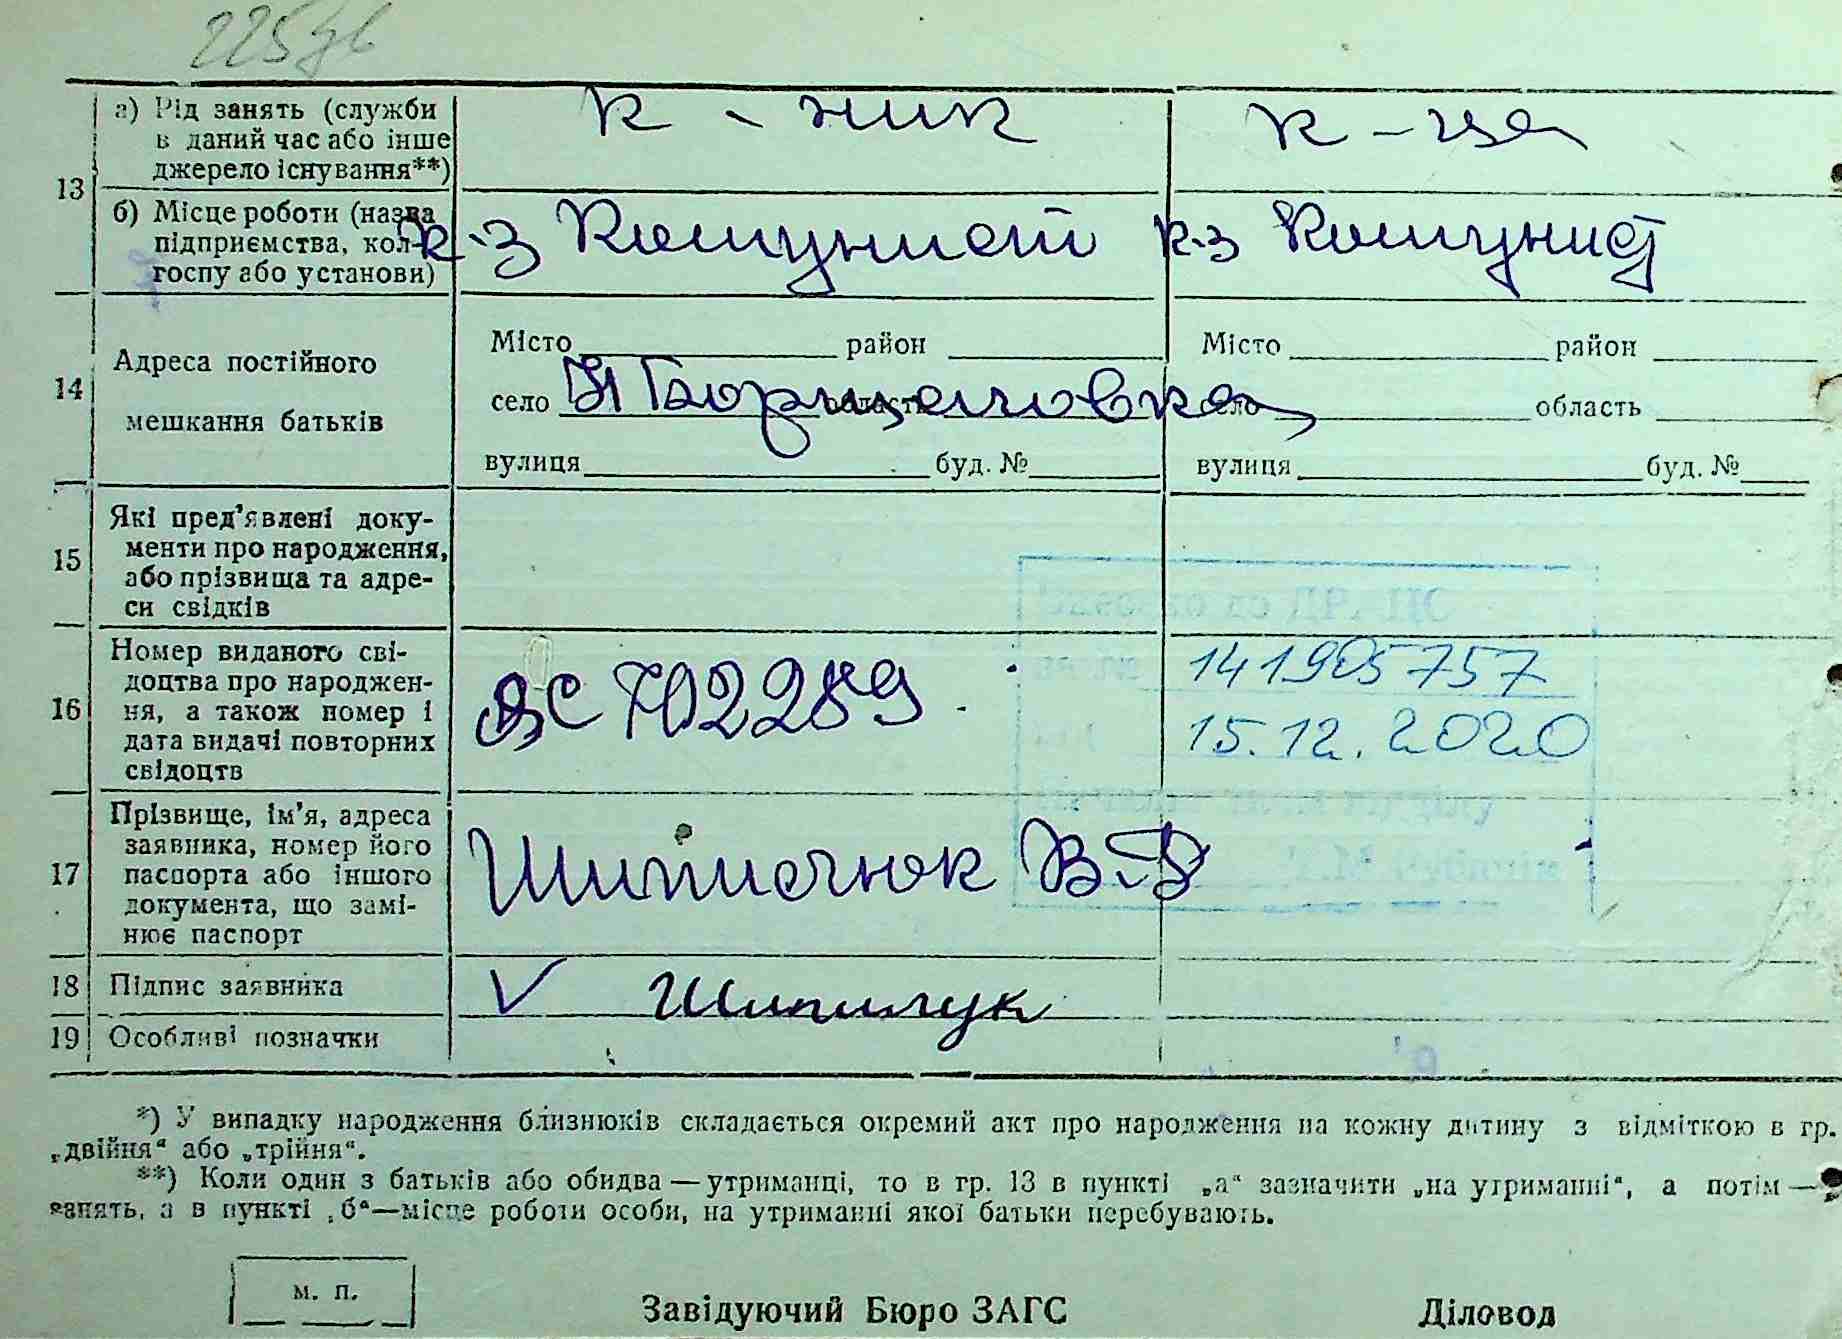 225
а) Рід занять (служби в даний час або інше джерело існування**)
к - ник
к - ца
13
б) Місце роботи (назва підприємства, колгоспу або установи)
к-з Комунист
к-з Комунист
14
Адреса постійного мешкання батьків
Місто район
село область
вулиця буд. №
Місто район
село область
вулиця буд. №
15
Які пред’явлені документи про народження, або прізвища та адреси свідків
16
Номер виданого свідоцтва про народження, а також номер і дата видачі повторних свідоцтв
ЯС 702289
до ДРАЦС
141905757
15.12.2020
17
Прізвище, ім’я, адреса заявника, номер його паспорта або іншого документа, що замінює паспорт
18
Підпис заявника
19
Особливі позначки
*) У випадку народження близнюків складається окремий акт про народження на кожну дитину з відміткою в гр.
„двійня“ або „трійня“.
**) Коли один з батьків або обидва — утриманці, то в гр. 13 в пункті „а“ зазначити „на утриманні“, а потім —
занять, а в пункті „б“—місце роботи особи, на утриманні якої батьки перебувають.
м. п.
Завідуючий Бюро ЗАГС
Діловод